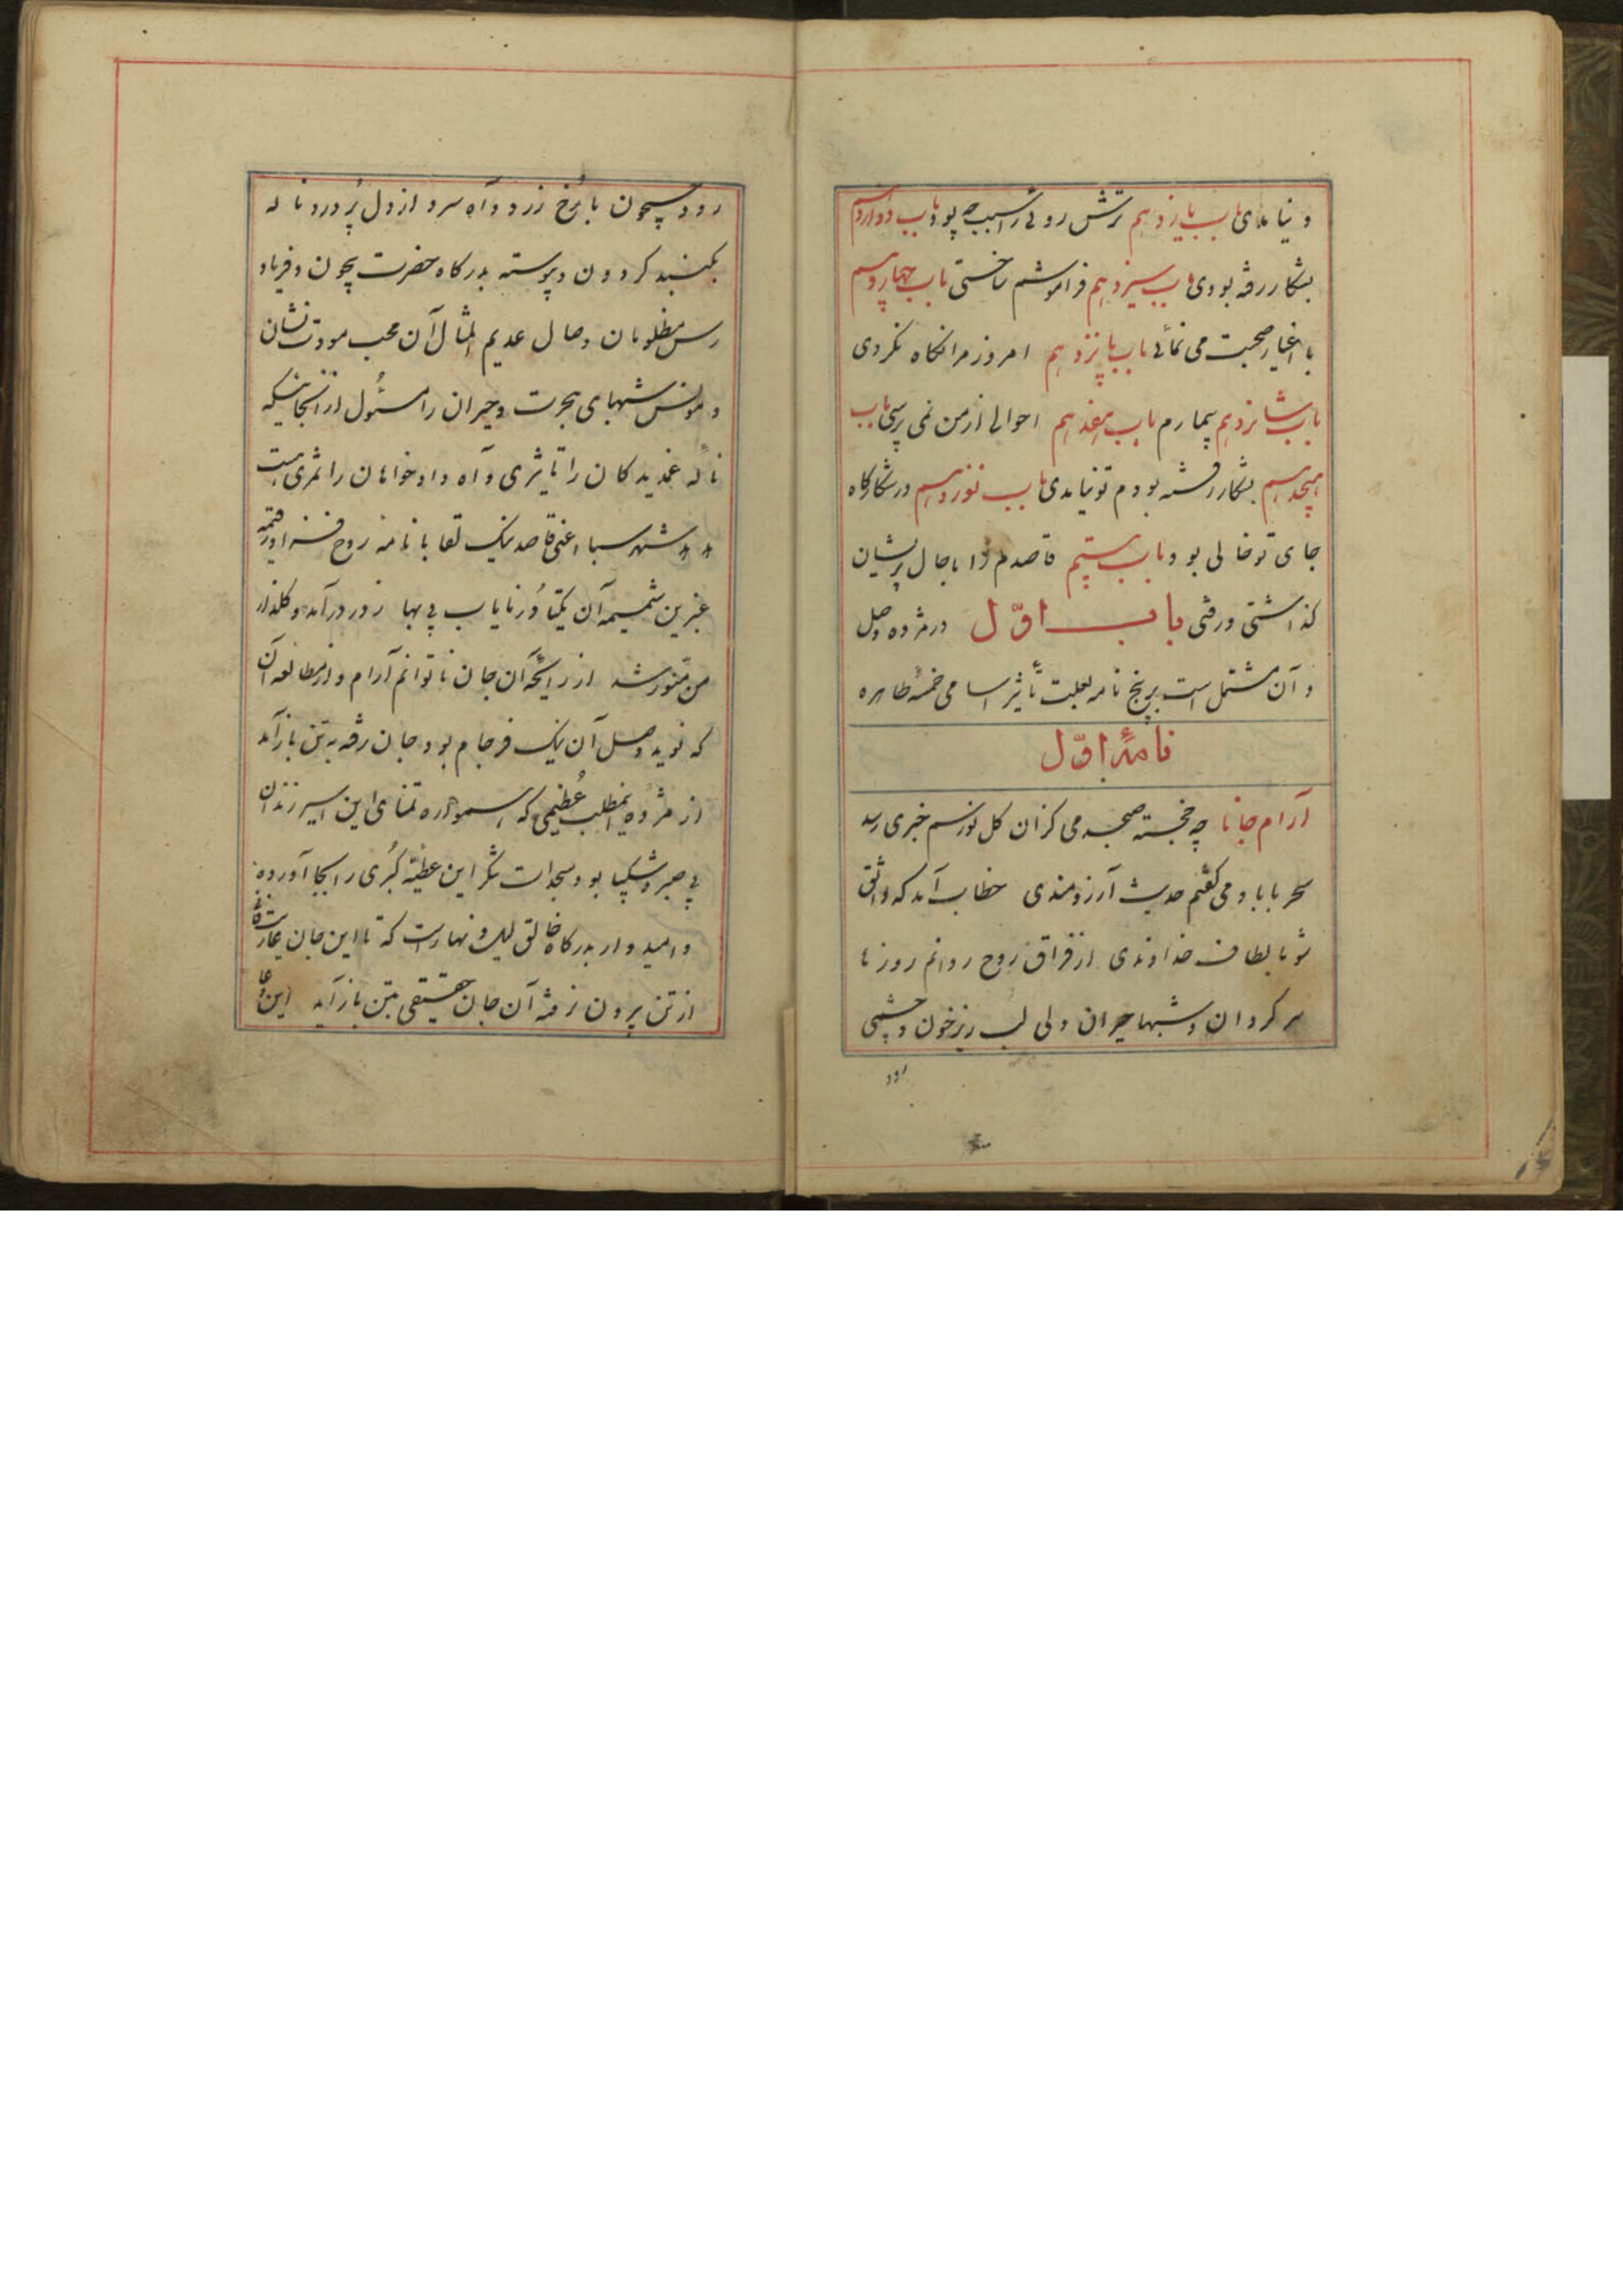 و نیامدی باب یازدهم ترش روئی را سبب چه بود باب دوازدهم
بشکار رفته بودی باب سیزدهم فراموشم ساختی باب چهاردهم
با اغیار صحبت می نمائی باب پانزدهم امروز مرا نکاه نکردی
باب شانزدهم بیمارم باب هفدهم احوالی از من نمی پرسی باب
هیجدهم بشکار رفته بودم تو نیامدی باب نوزدهم در شکارکاه
جای تو خالی بود باب بیستم قاصدم را با حال پریشان
کذاشتی و رفتی باب اوّل در مژده وصل
و آن مشتمل است بر پنج نامه بعلت تأثیر اسامی خمسهٔ طاهره
نامهٔ اوّل
آرام جانا چه خجسته صبحدمی کزان کل نورسم خبری رسد
سحر با باد می کفتم حدیث آرزومندی خطاب آمد که واثق
شو بالطاف خداوندی از فراق روح روانم روزها
سر کردان و شبها حیران دلی لب ریز خون و چشمی
رود
رود جیحون با رُخ زرد و آه سرد از دل پُر درد ناله
بکنبد کردون و پیوسته بدرکاه حضرت بیچون و فریاد
رس مظلومان وصال عدیم المثال آن محب مودت نشان
و مونس شبهای هجرت و حیران را مسئول از آنجائیکه
ناله غمدیدکان را تاثیری و آه دادخواهان را ثمری هست
شهر سبا اعنی قاصد نیک لقا با نامه روح فزا و رقیمه
عنبرین شمیمه آن یکتا دُر نایاب بی بها از در درآمد و کلذار
من منّور شد از رایحهٔ آن جان ناتوانم آرام و از مطالعه آن
که نوید وصل آن نیک فرجام بود جان رفته به تن باز آمد
از مژدهٔ اینمطلب عُظیمی که همواره تمنای این اسیر زندان
بی صبر و شکیبا بود سجدات شکر این عطیّه کُبری را بجا آورده
و امیدوار بدرکاه خالق لیل و نهار است که تا این جان عاریت
از تن بیرون نرفته آن جان حقیقی بتن باز آید این